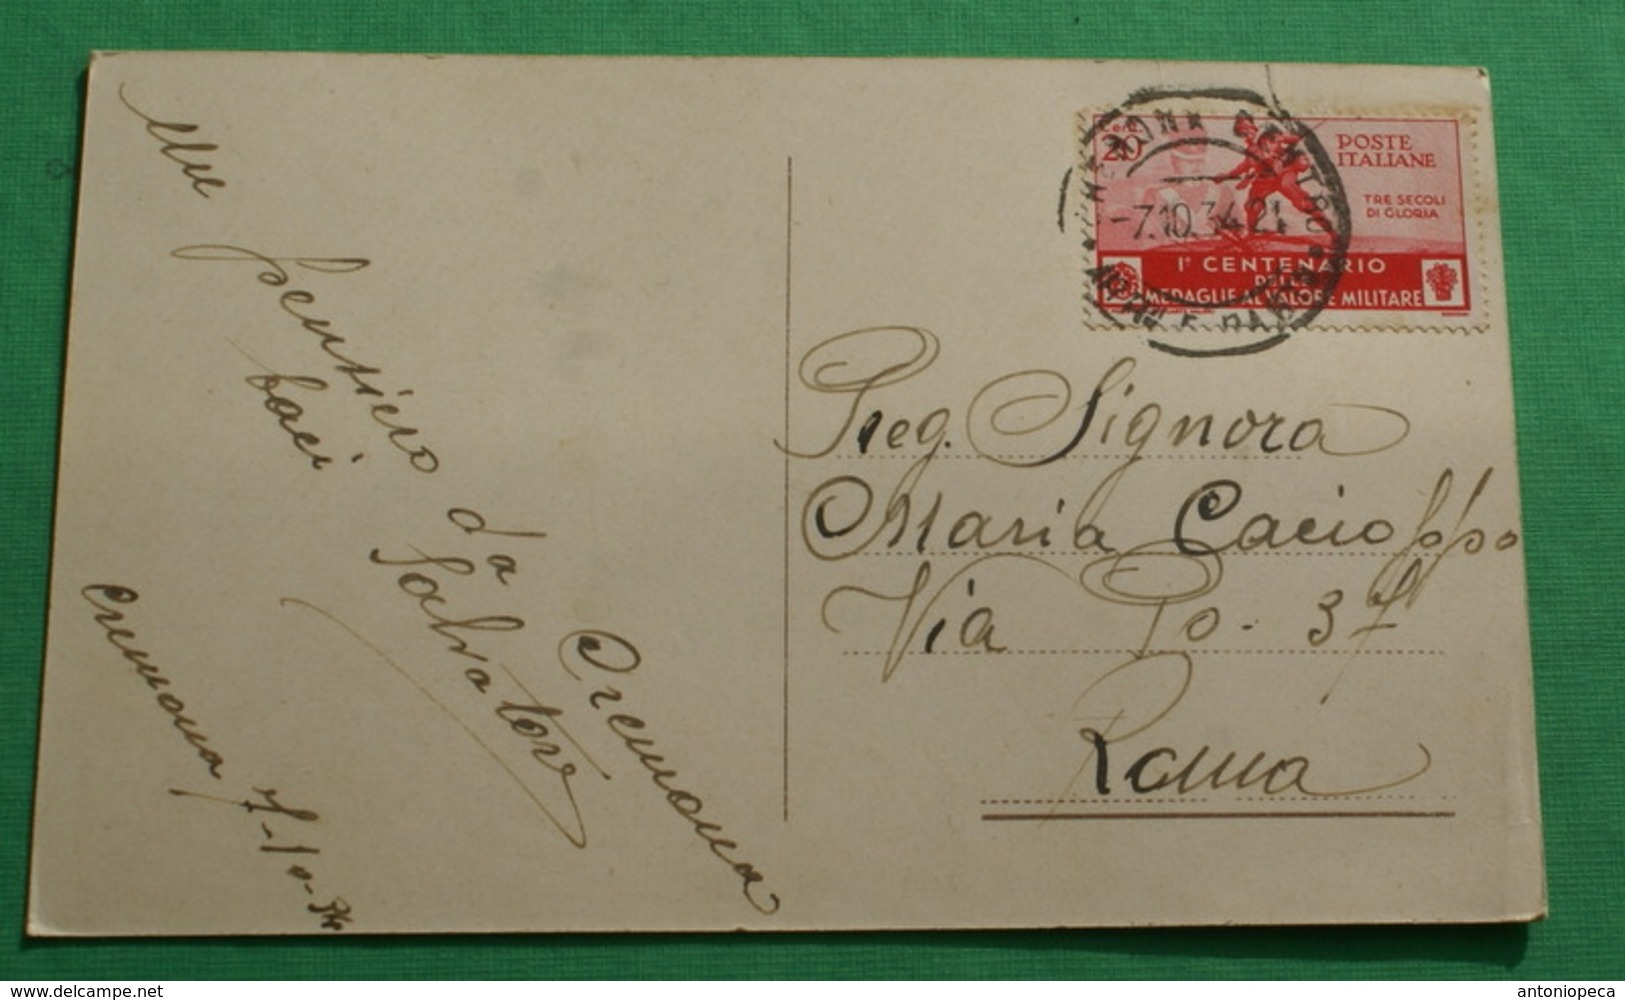 Un pensiero da
baci
Salvatore
Cremona
Cremona 7-10-34
Preg. Signora
Maria Cacioppo
Via Po - 37
Roma
Cent.
20
POSTE
ITALIANE
TRE SECOLI
DI GLORIA
I° CENTENARIO
DELLE
MEDAGLIE AL VALORE MILITARE
CREMONA CENTRO
-7.10.34.21
www.delcampe.net
antoniopeca